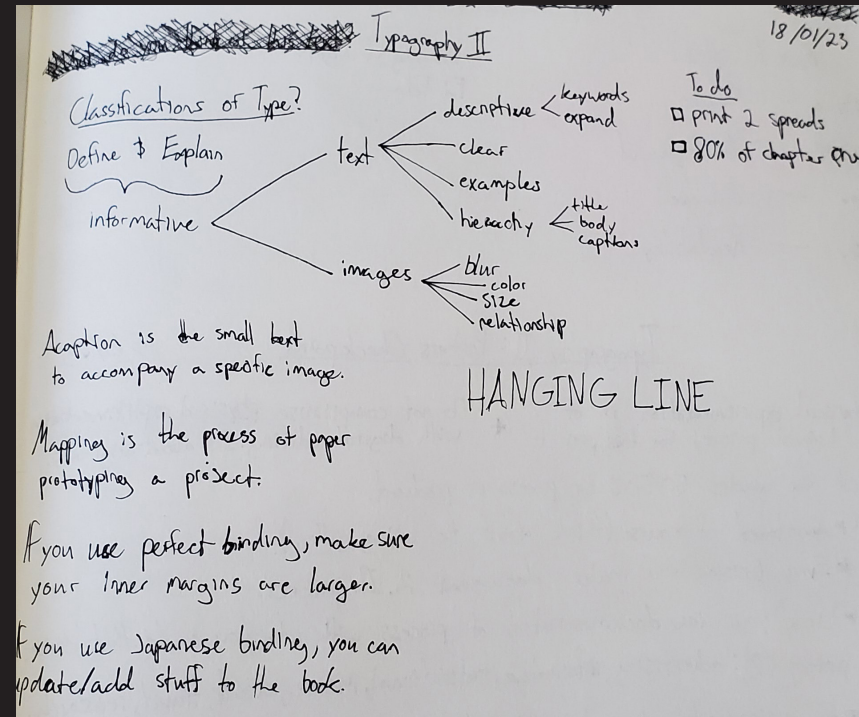 Typography II
18/01/23
Classifications of Type?
Define & Explain
informative
text
descriptive
keywords
expand
clear
examples
hierachy
title
body
captions
images
blur
color
size
relationship
To do
print 2 spreads
80% of chapter
A caption is the small text
to accompany a specific image.
HANGING LINE
Mapping is the process of paper
prototyping a project.
If you use perfect binding, make sure
your inner margins are larger.
If you use Japanese binding, you can
update/add stuff to the book.